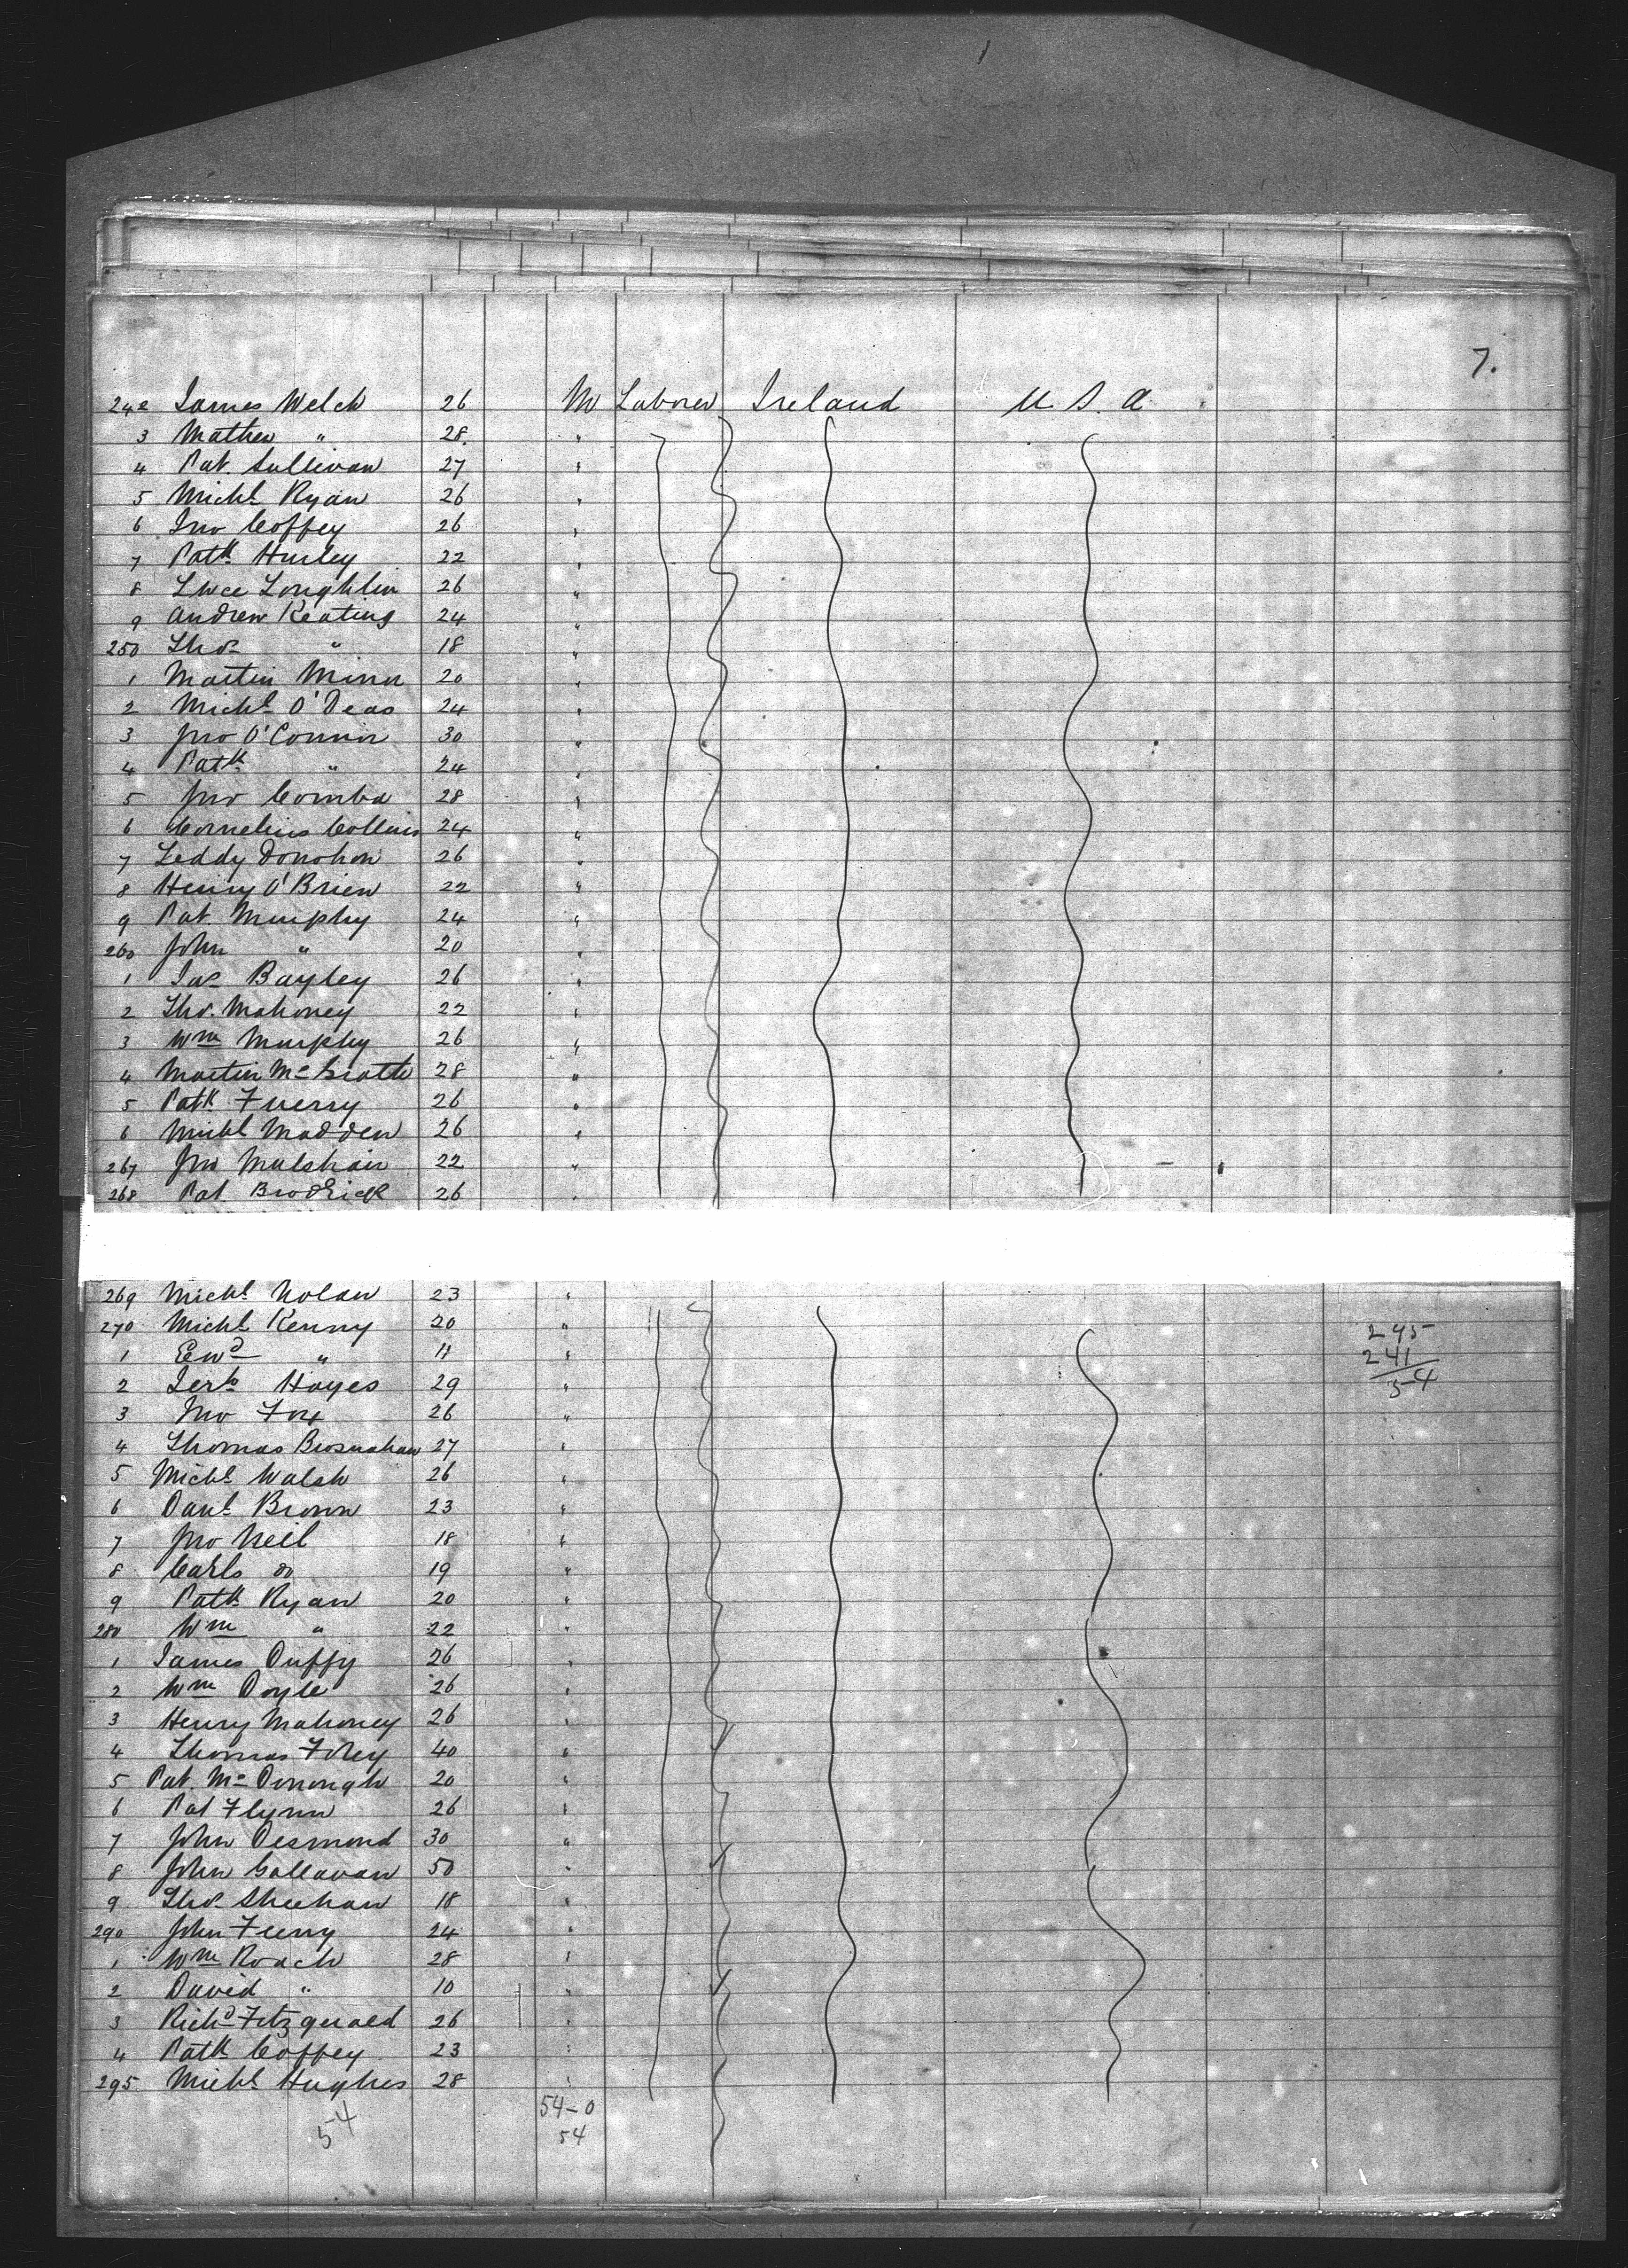 7.
242 James Welch 26 M Laborer Ireland U.S.A.
3 Mathew " 28 "
4 Pat. Sullivan 27 "
5 Michl Ryan 26 "
6 Jno Coffey 26 "
7 Patk Hurley 22 "
8 Lwce Loughlin 26 "
9 Andrew Keating 24 "
250 Thos " 18 "
1 Martin Minn 20 "
2 Michl O'Deas 24 "
3 Jno O'Connor 30 "
4 Patk " 24 "
5 Jno Comba 28 "
6 Cornelius Collins 24 "
7 Teddy Donohon 26 "
8 Henry O'Brien 22 "
9 Pat Murphy 24 "
260 John " 20 "
1 Jas Bayley 26 "
2 Tho. Mahoney 22 "
3 Wm Murphy 26 "
4 Martin McGrath 28 "
5 Patk Fuerry 26 "
6 Michl Madden 26 "
267 Jno Mulshair 22 "
268 Pat Brodrick 26 "
269 Michl Nolan 23 "
270 Michl Kenny 20 " 295
1 Ewd " 11 " 241
2 Jerh Hayes 29 " 54
3 Jno Fox 26 "
4 Thomas Brosnahan 27 "
5 Michl Walsh 26 "
6 Danl Brown 23 "
7 Jno Neil 18 "
8 Carls do 19 "
9 Patk Ryan 20 "
280 Wm " 22 "
1 James Duffy 26 "
2 Wm Doyle 26 "
3 Henry Mahoney 26 "
4 Thomas Foley 40 "
5 Pat. McDonough 20 "
6 Pat Flynn 26 "
7 John Desmond 30 "
8 John Gallavan 50 "
9 Thos Sheehan 18 "
290 John Feeny 24 "
1 Wm Roach 28 "
2 David " 10 "
3 Richd Fitzgerald 26 "
4 Patk Coffey 23 "
295 Michl Hughes 28 "
54 54-0
54